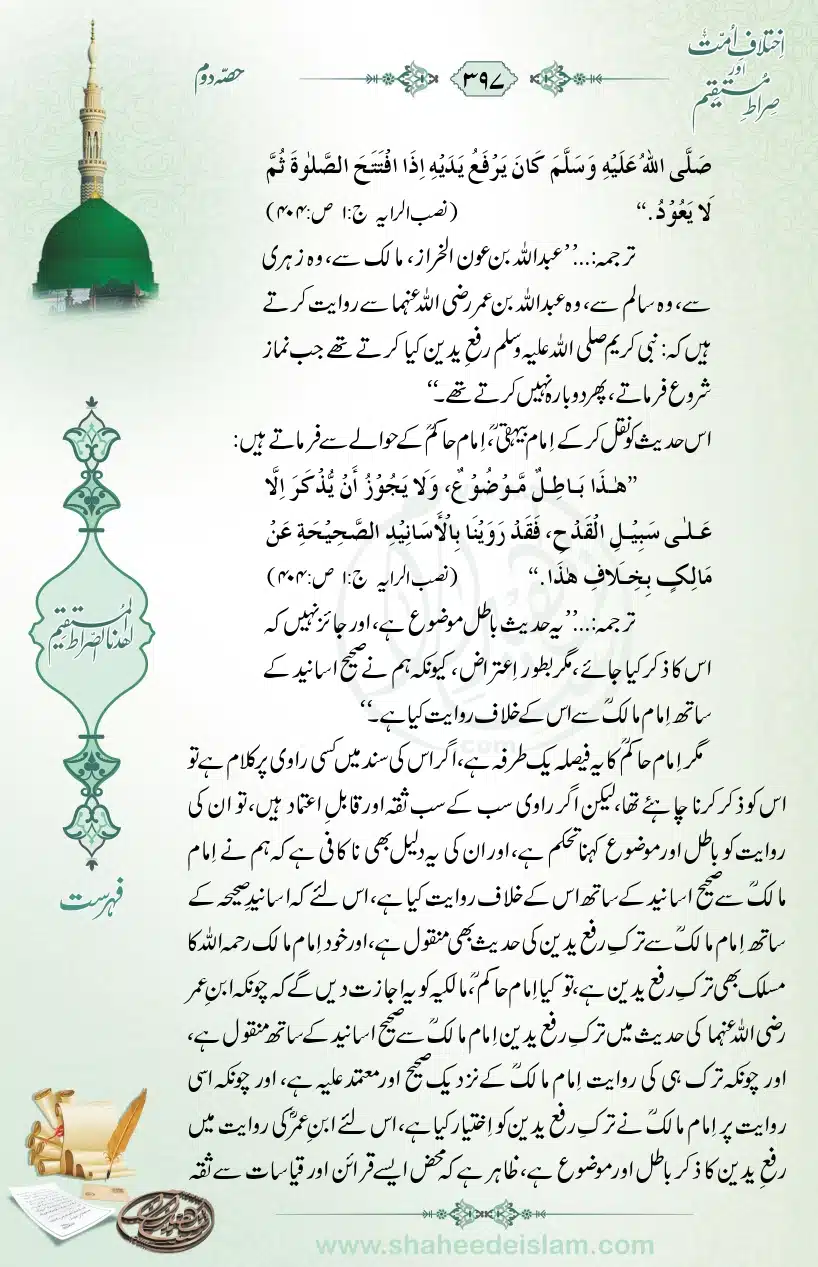 اِختلافِ اُمّت
اور
صِراطِ مُستقیم
۳۹۷
حصّہ دوم
صَلَّی اللهُ عَلَیْهِ وَسَلَّمَ کَانَ یَرْفَعُ یَدَیْهِ اِذَا افْتَتَحَ الصَّلٰوةَ ثُمَّ
لَا یَعُوْدُ.“ (نصب الرایہ ج:۱ ص:۴۰۴)
ترجمہ:...’’عبداللہ بن عون الخراز، مالک سے، وہ زہری
سے، وہ سالم سے، وہ عبداللہ بن عمر رضی اللہ عنہما سے روایت کرتے
ہیں کہ: نبی کریم صلی اللہ علیہ وسلم رفعِ یدین کیا کرتے تھے جب نماز
شروع فرماتے، پھر دوبارہ نہیں کرتے تھے۔‘‘
اس حدیث کو نقل کرکے اِمام بیہقیؒ، اِمام حاکمؒ کے حوالے سے فرماتے ہیں:
”هٰذَا بَاطِلٌ مَّوْضُوْعٌ، وَلَا یَجُوْزُ أَنْ یُّذْکَرَ اِلَّا
عَلٰی سَبِیْلِ الْقَدْحِ، فَقَدْ رَوَیْنَا بِالْأَسَانِیْدِ الصَّحِیْحَةِ عَنْ
مَالِکٍ بِخِلَافِ هٰذَا.“ (نصب الرایہ ج:۱ ص:۴۰۴)
ترجمہ:...’’یہ حدیث باطل موضوع ہے، اور جائز نہیں کہ
اس کا ذکر کیا جائے، مگر بطور اِعتراض، کیونکہ ہم نے صحیح اسانید کے
ساتھ اِمام مالکؒ سے اس کے خلاف روایت کیا ہے۔‘‘
مگر اِمام حاکمؒ کا یہ فیصلہ یک طرفہ ہے، اگر اس کی سند میں کسی راوی پر کلام ہے تو
اس کو ذکر کرنا چاہئے تھا، لیکن اگر راوی سب کے سب ثقہ اور قابلِ اعتماد ہیں، تو ان کی
روایت کو باطل اور موضوع کہنا تحکم ہے، اور ان کی یہ دلیل بھی ناکافی ہے کہ ہم نے اِمام
مالکؒ سے صحیح اسانید کے ساتھ اس کے خلاف روایت کیا ہے، اس لئے کہ اسانیدِ صحیحہ کے
ساتھ اِمام مالکؒ سے ترکِ رفعِ یدین کی حدیث بھی منقول ہے، اور خود اِمام مالک رحمہ اللہ کا
مسلک بھی ترکِ رفعِ یدین ہے، تو کیا اِمام حاکمؒ، مالکیہ کو یہ اجازت دیں گے کہ چونکہ ابنِ عمر
رضی اللہ عنہما کی حدیث میں ترکِ رفعِ یدین اِمام مالکؒ سے صحیح اسانید کے ساتھ منقول ہے،
اور چونکہ ترک ہی کی روایت اِمام مالکؒ کے نزدیک صحیح اور معتمد علیہ ہے، اور چونکہ اسی
روایت پر اِمام مالکؒ نے ترکِ رفعِ یدین کو اِختیار کیا ہے، اس لئے ابنِ عمرؓ کی روایت میں
رفعِ یدین کا ذکر باطل اور موضوع ہے، ظاہر ہے کہ محض ایسے قرائن اور قیاسات سے ثقہ
اهدنا الصّراط المُستقیم
فہرست
www.shaheedeislam.com